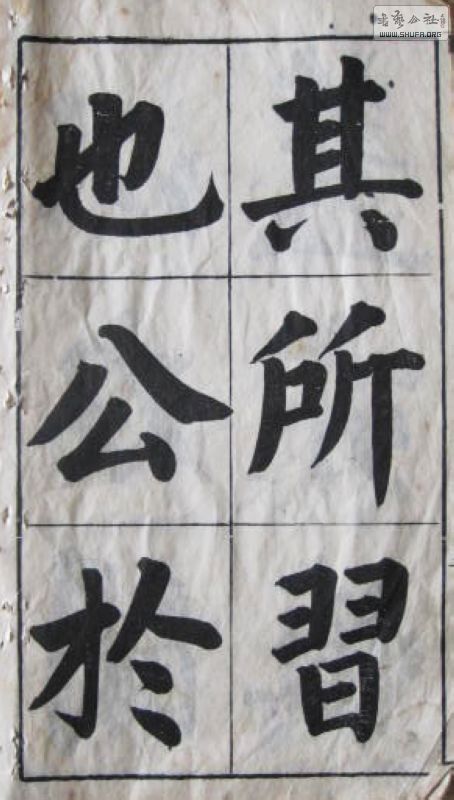 其所習
也公於
书艺公社
www.SHUFA.ORG